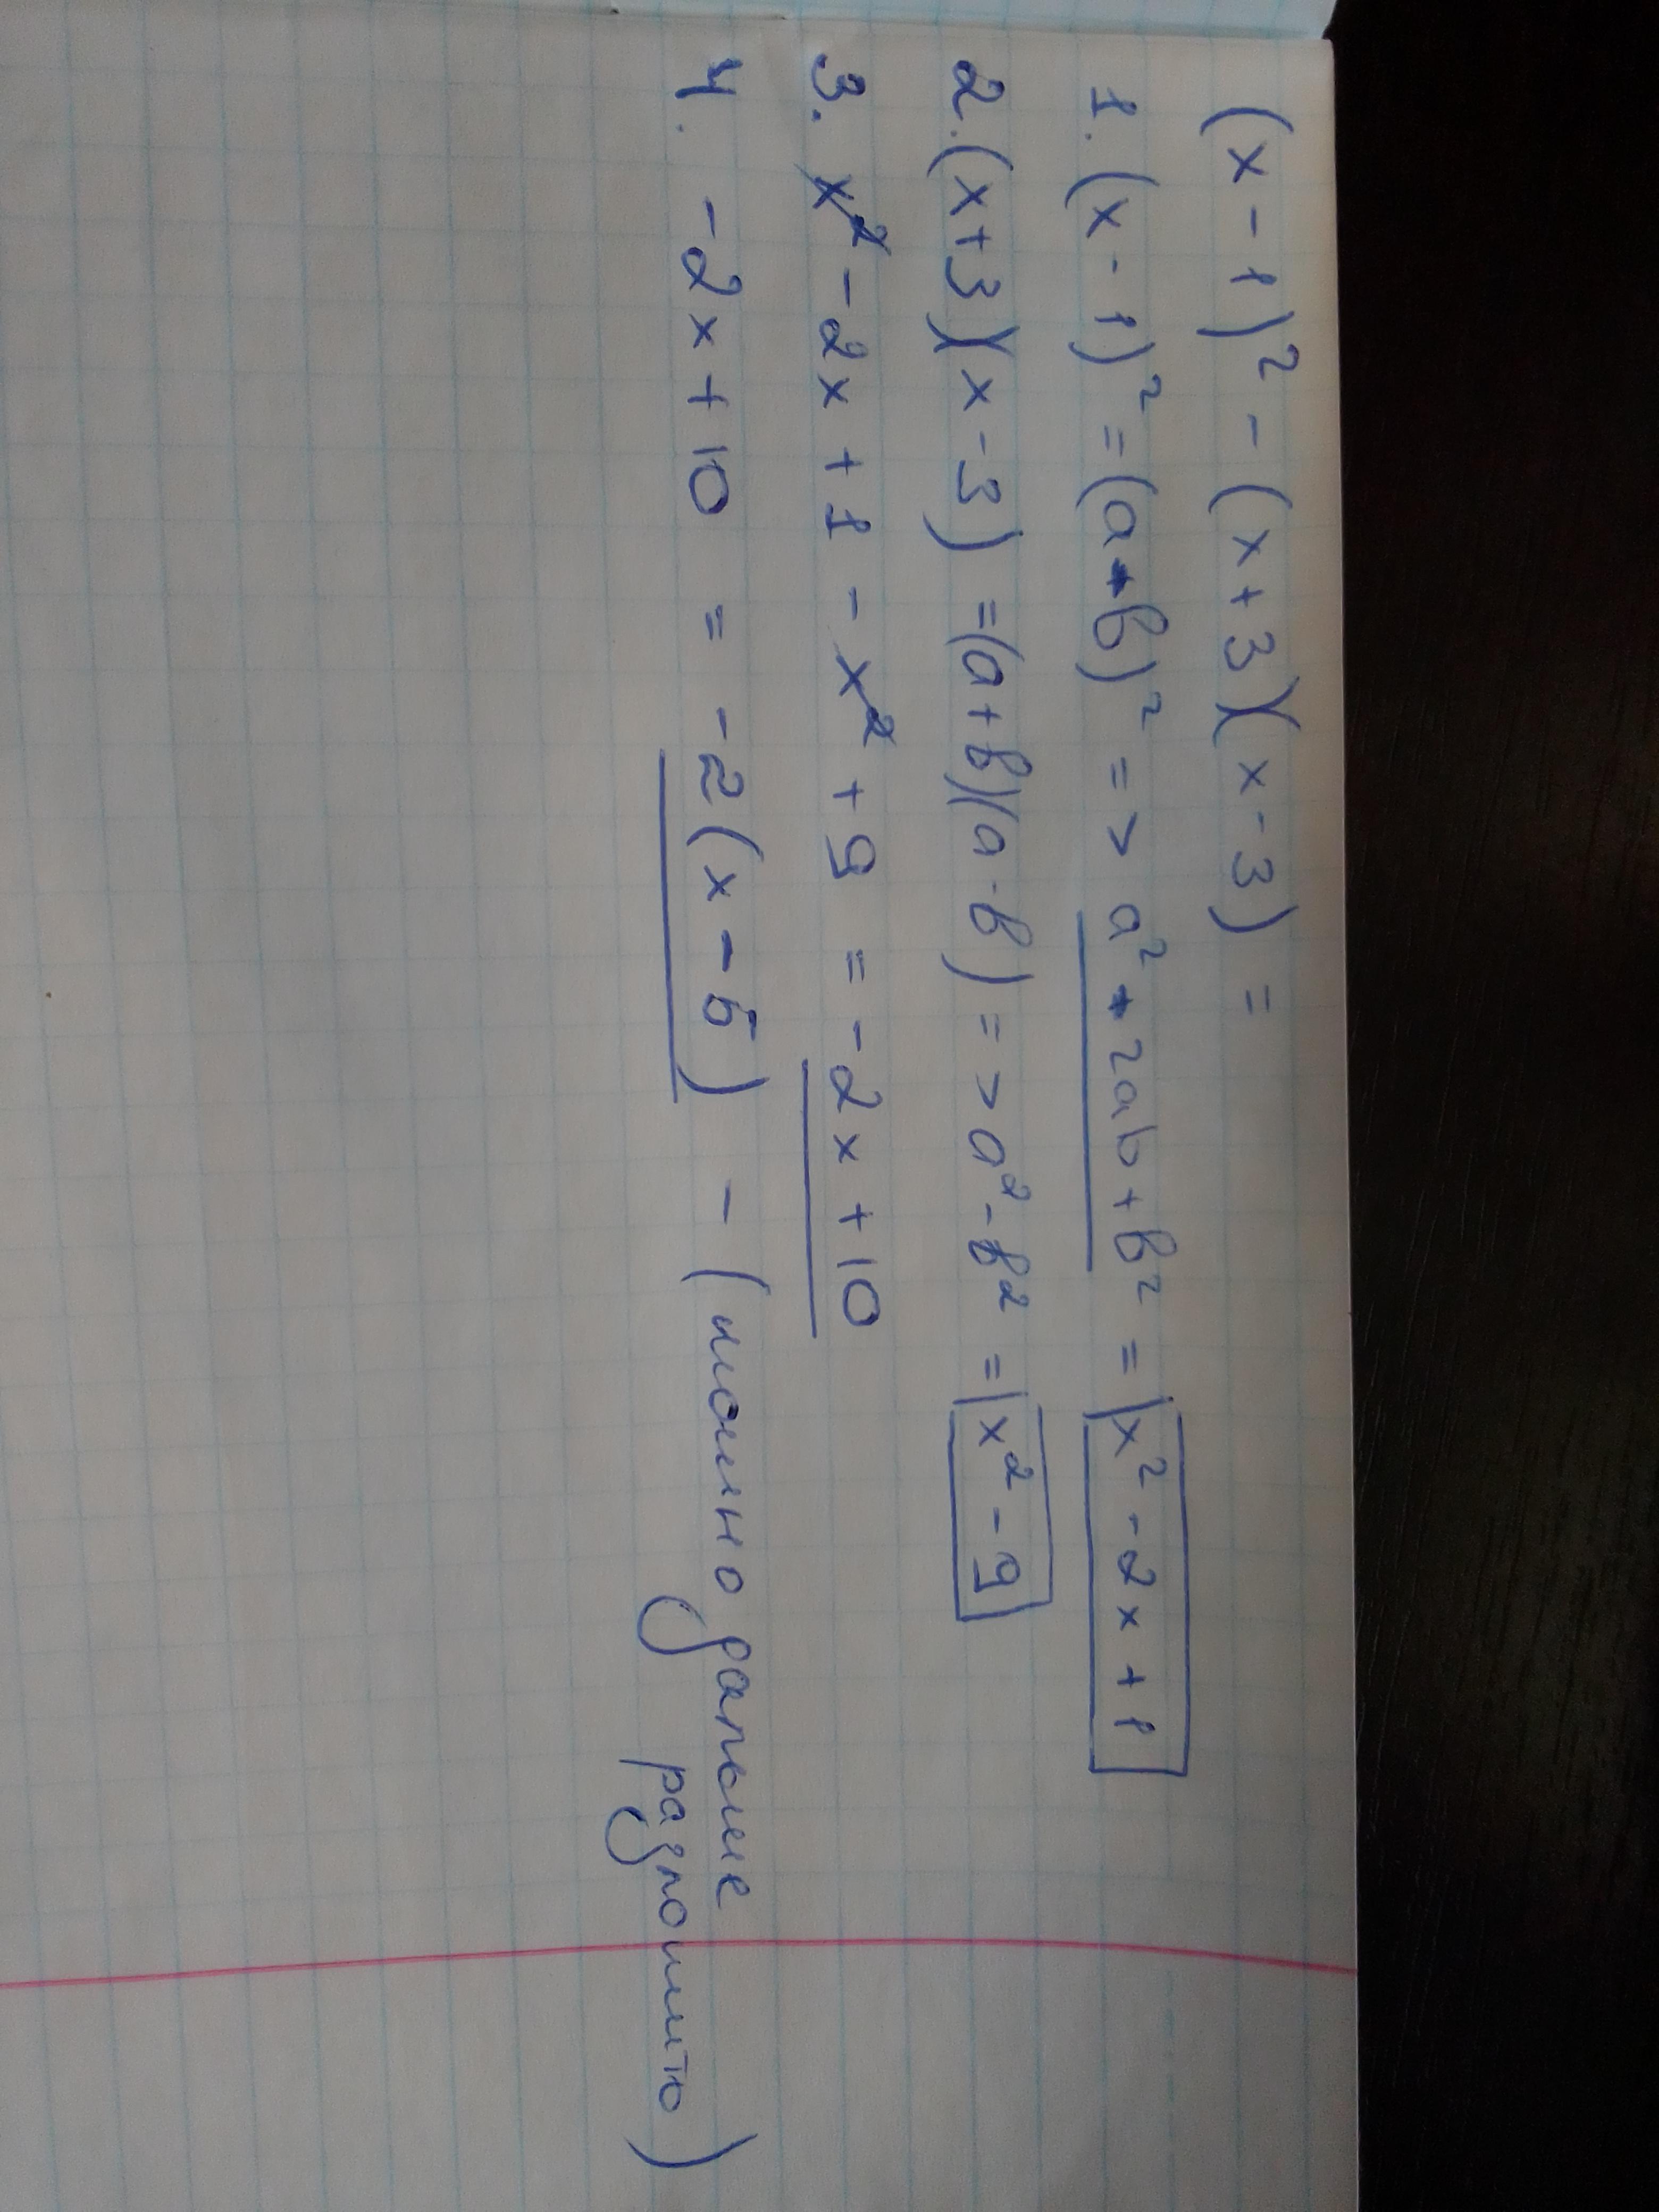 (x-1)² - (x+3)(x-3) =
1. (x-1)² = (a-b)² => a² - 2ab + b² = |x² - 2x + 1
2. (x+3)(x-3) = (a+b)(a-b) => a² - b² = |x² - 9
3. x² - 2x + 1 - x² + 9 = -2x + 10
4. -2x + 10 = -2(x-5) - (можно дальше
разложить)